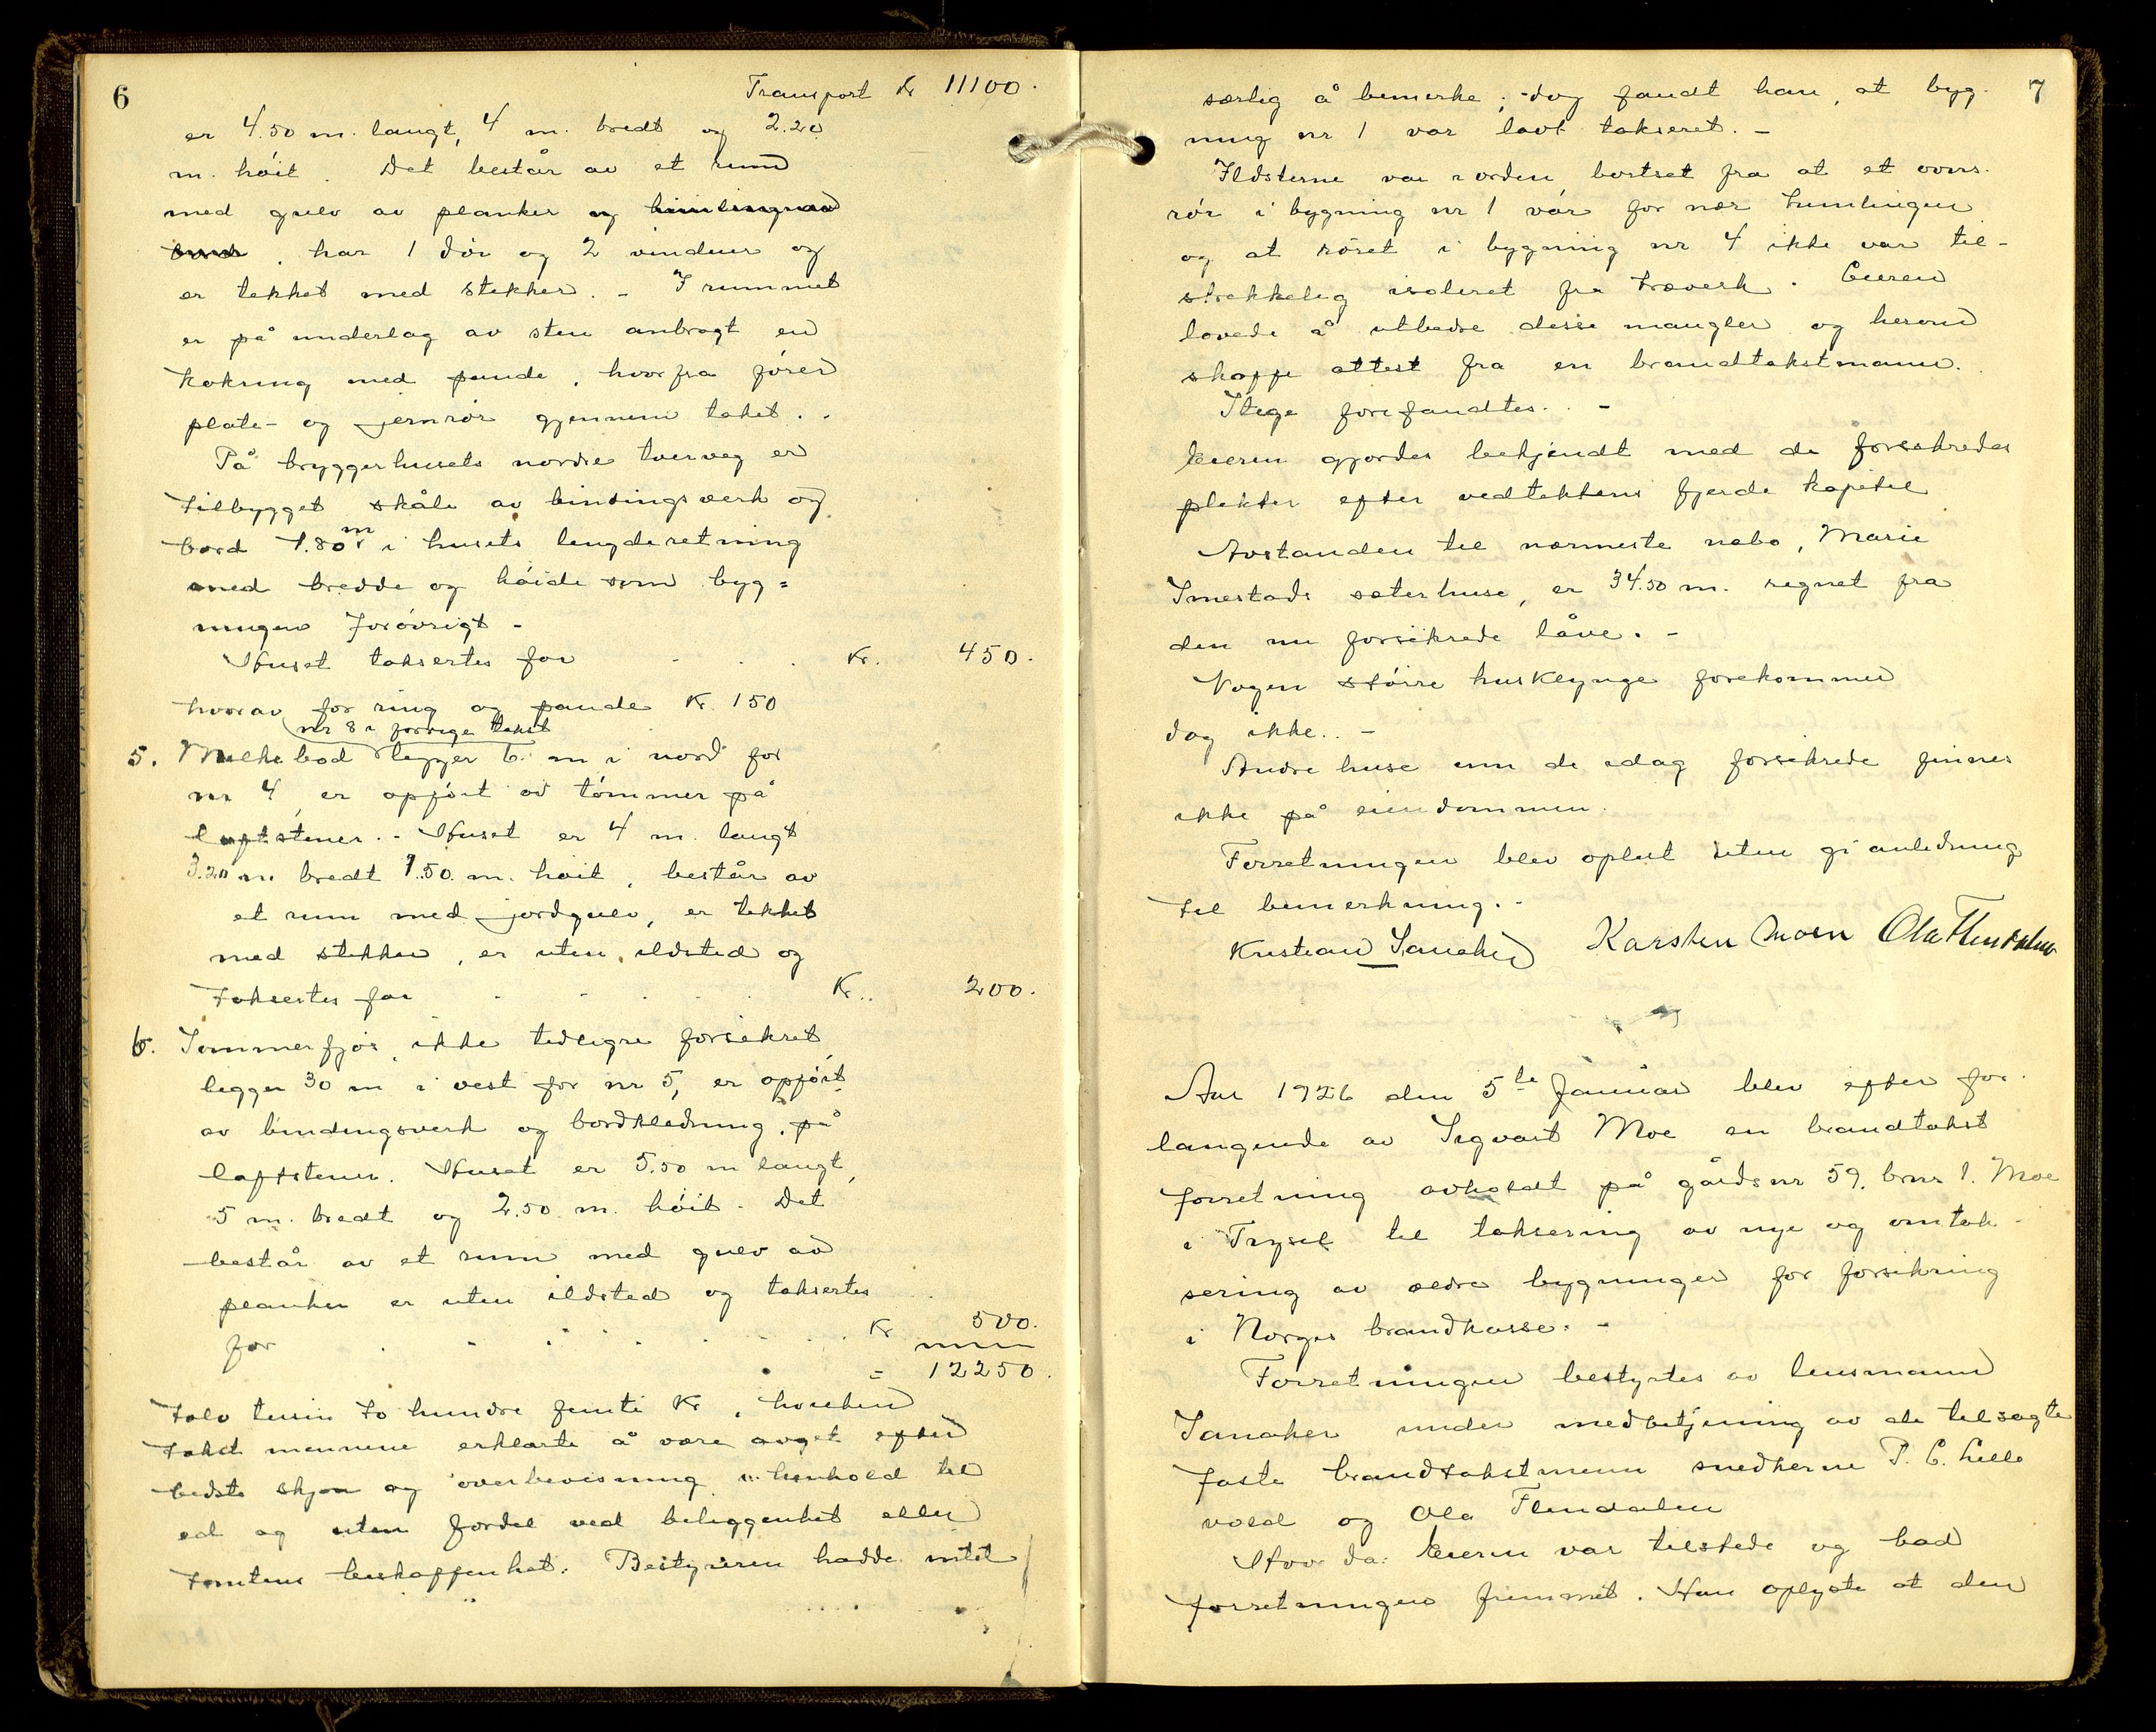 6
Transport kr 11100.
er 4.50 m. langt, 4 m. bredt og 2.20
m. høit. Det består av et rum
med gulv av planker og himlingav
bord, har 1 dør og 2 vinduer og
er tekket med stikker. - I rummet
er på underlag av sten anbragt en
kokring med pande, hvorfra fører
plate- og jernrør gjennem taket. -
På bryggerhusets nordre tvervæg er
tilbygget skåle av bindingsverk og
bord 1.80 m i husets lengderetning
med bredde og høide som byg=
ningen forøvrigt -
Huset taksertes for . . . Kr. 450.
hvorav for ring og pande Kr. 150
nr 8 i forrige takst
5. Melkebod ligger 6 m i nord for
nr 4, er opført av tømmer på
løftstener. - Huset er 4 m. langt
3.20 m. bredt 1.50. m. høit, består av
et rum med jordgulv, er tekket
med stikker, er uten ildsted og
taksertes for . . . Kr.. 200.
6. Sommerfjøs, ikke tidligre forsikret
ligger 30 m i vest for nr 5, er opført
av bindingsverk og bordkledning, på
løftstener. Huset er 5.50 m langt,
5 m. bredt og 2.50 m. høit. Det
består av et rum med gulv av
planker er uten ildsted og taksertes
for . . . Kr 500.
= 12250.
Tolv tusin to hundre femti Kr, hvilken
takst mennene erklærte å være avgit efter
bedste skjøn og overbevisning i henhold til
ed og uten fordel ved beliggenhet eller
tomtens beskaffenhet. Bestyreren hadde intet
7
særlig å bemerke; dog fandt han, at byg-
ning nr 1 var lavt taksert. -
Ildsterne var i orden, bortset fra at et ovns-
rør i bygning nr 1 var for nær himlingen
og at røret i bygning nr 4 ikke var til-
strekkelig isoleret fra træverk. Eieren
lovede å utbedre disse mangler og herom
skaffe attest fra en brandtakstmann.
Stige forefandtes. -
Eieren gjordes bekjendt med de forsikredes
plikter efter vedtektens fjerde kapitel
Avstanden til nærmeste nabo, Marie
Smestads sæterhuse, er 34.50 m. regnet fra
den nu forsikrede låve. -
Nogen større husklynge forekommer
dog ikke.. -
Andre huse enn de idag forsikrede finnes
ikke på eiendommen.
Forretningen blev oplest uten gi anledning
til bemerkning. -
Kristian Sanaker Karsten Moen Ola Flendalen
Aar 1926 den 5te Januar blev efter for-
langende av Sigvart Moe en brandtakst
forretning avholdt på gårdsnr 59. brnr 1. Moe
i Trysil til taksering av nye og omtak-
sering av ældre bygninger for forsikring
i Norges brandkasse. -
Forretningen bestyrtes av lensmann
Sanaker under medbetjening av de tilsagte
faste brandtakstmenn snedkerne P. C. Lille
vold og Ola Flendalen
Hvor da: Eieren var tilstede og bad
forretningen fremmet. Han oplyste at den